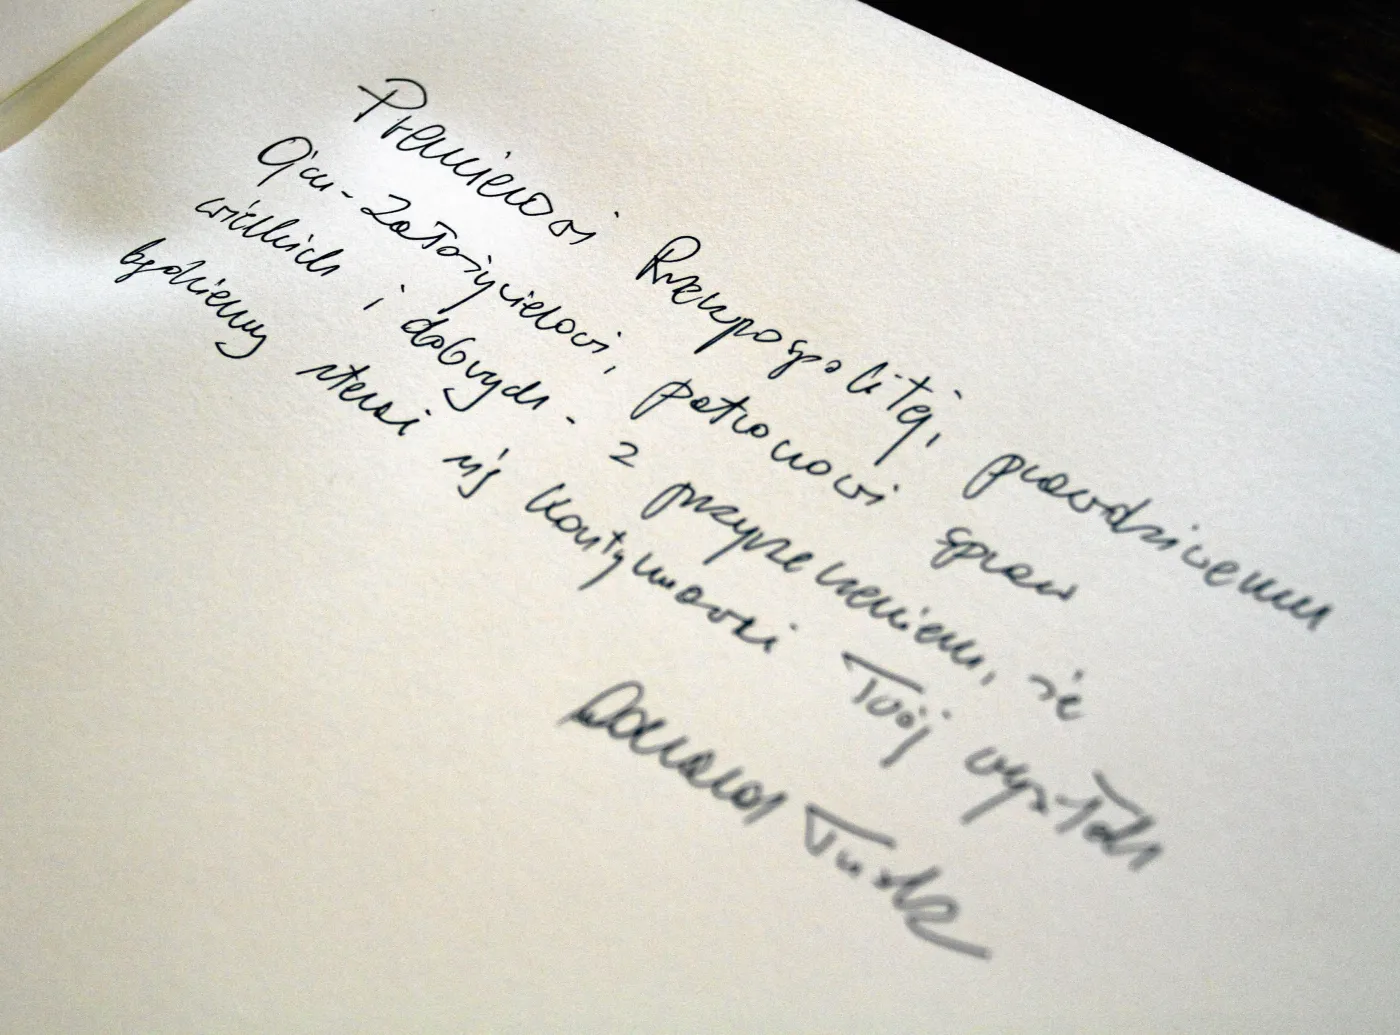 Premierowi Rzeczpospolitej, prawdziwemu
Ojcu-Założycielowi, patronowi spraw
wielkich i dobrych - z przyrzeczeniem, że
będziemy starali się kontynuować Twój wysiłek
Donald Tusk